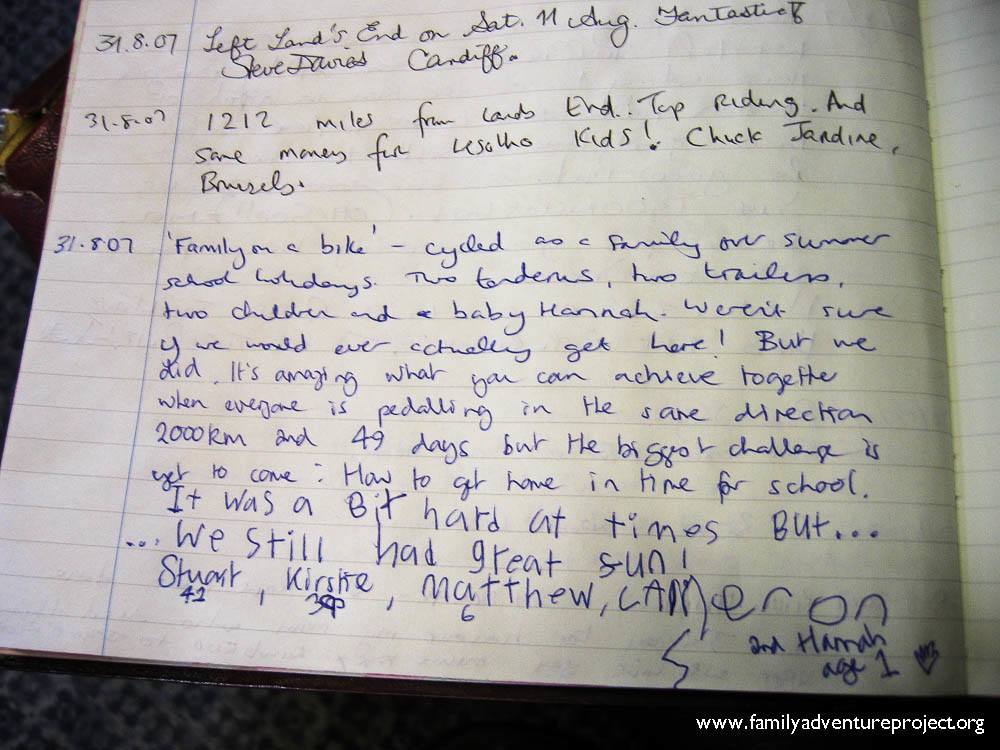 31.8.07 Left Land's End on Sat. 11 Aug. Fantastic
Steve Davies Cardiff.
31.8.07 1212 miles from Lands End. Top Riding. And
some money for Lesotho Kids! Chuck Jardine,
Brussels.
31.8.07 'Family on a bike' - cycled as a family over summer
school holidays. Two tandems, two trailers,
two children and a baby Hannah. Weren't sure
if we would ever actually get here! But we
did. It's amazing what you can achieve together
when everyone is pedalling in the same direction
2000km and 49 days but the biggest challenge is
yet to come: How to get home in time for school.
It was a Bit hard at times But...
...We still had great fun!
Stuart, Kirstie, Matthew, CAMeron
42 6
5
and Hannah
age 1
www.familyadventureproject.org